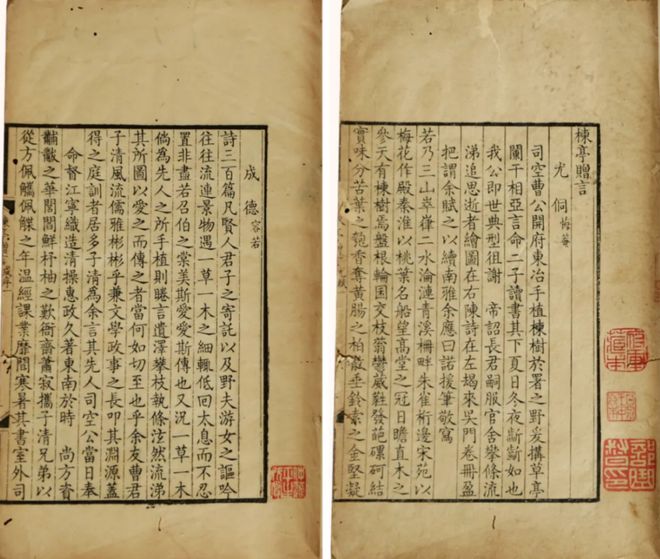 楝亭贈言
尤侗 悔菴
司空曹公開府東冶手植楝樹於署之野爰搆草亭
闌干相亞言命二子讀書其下夏日冬夜斷斷如也
我公即世典型徂謝 帝詔長君嗣服官舍攀條流
涕追思逝者繪圖在右陳詩在左朅來吳門卷冊盈
把謂余賦之以續南雅余應曰諾援筆敬寫
若乃三山崒嵂二水淪漣青溪柵畔朱雀桁邊宋苑以
梅花作殿秦淮以桃葉名船望高堂之冠日瞻直木之
參天有楝樹焉盤根輪囷交枝蓊鬱葳蕤發葩磥砢結
實味分苦葉之匏香奪黃腸之柏散垂鈴索之金堅凝
成德 容若
詩三百篇凡賢人君子之寄託以及野夫游女之謳吟
往往流連景物遇一草一木之細輒低回太息而不忍
置非盡若召伯之棠美斯愛愛斯傳也又況一草一木
倘為先人之所手植則睠言遺澤攀枝執條泫然流涕
其所圖以愛之而傳之者當何如切至也乎余友曹君
子清風流儒雅彬彬乎兼文學政事之長叩其淵源蓋
得之庭訓者居多子清為余言其先人司空公當日奉
命督江寧織造清操惠政久著東南於時 尚方資
黼黻之華閭閻鮮杼柚之歎衙齋蕭寂攜子清兄弟以
從方佩觽佩韘之年溫經課業靡間寒暑其書室外司